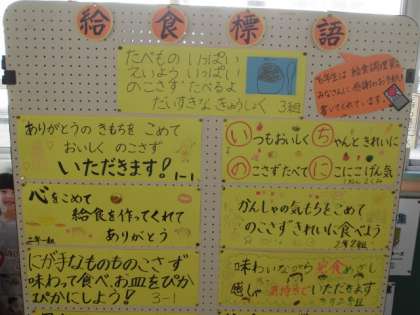 給食標語
たべもの いっぱい
えいよう いっぱい
のこさず たべるよ
だいすきな きゅうしょく 3組
6年生は 給食調理員の
みなさんに 感謝のお手紙を
書いてくれています
ありがとうの きもちを こめて
おいしく のこさず
いただきます! 1-1
いつもおいしく ちゃんときれいに
のこさずたべて にこにこげん気
心をこめて
給食を作ってくれて
ありがとう
二年一組
かんしゃの気もちをこめて
のこさずきれいに食べよう
2年2組
にが手なものものこさず
味わって食べ、お皿をぴか
ぴかにしよう! 3-1
味わいながら 完食めざし
感しゃ 気持ちで いただきます
3年2組